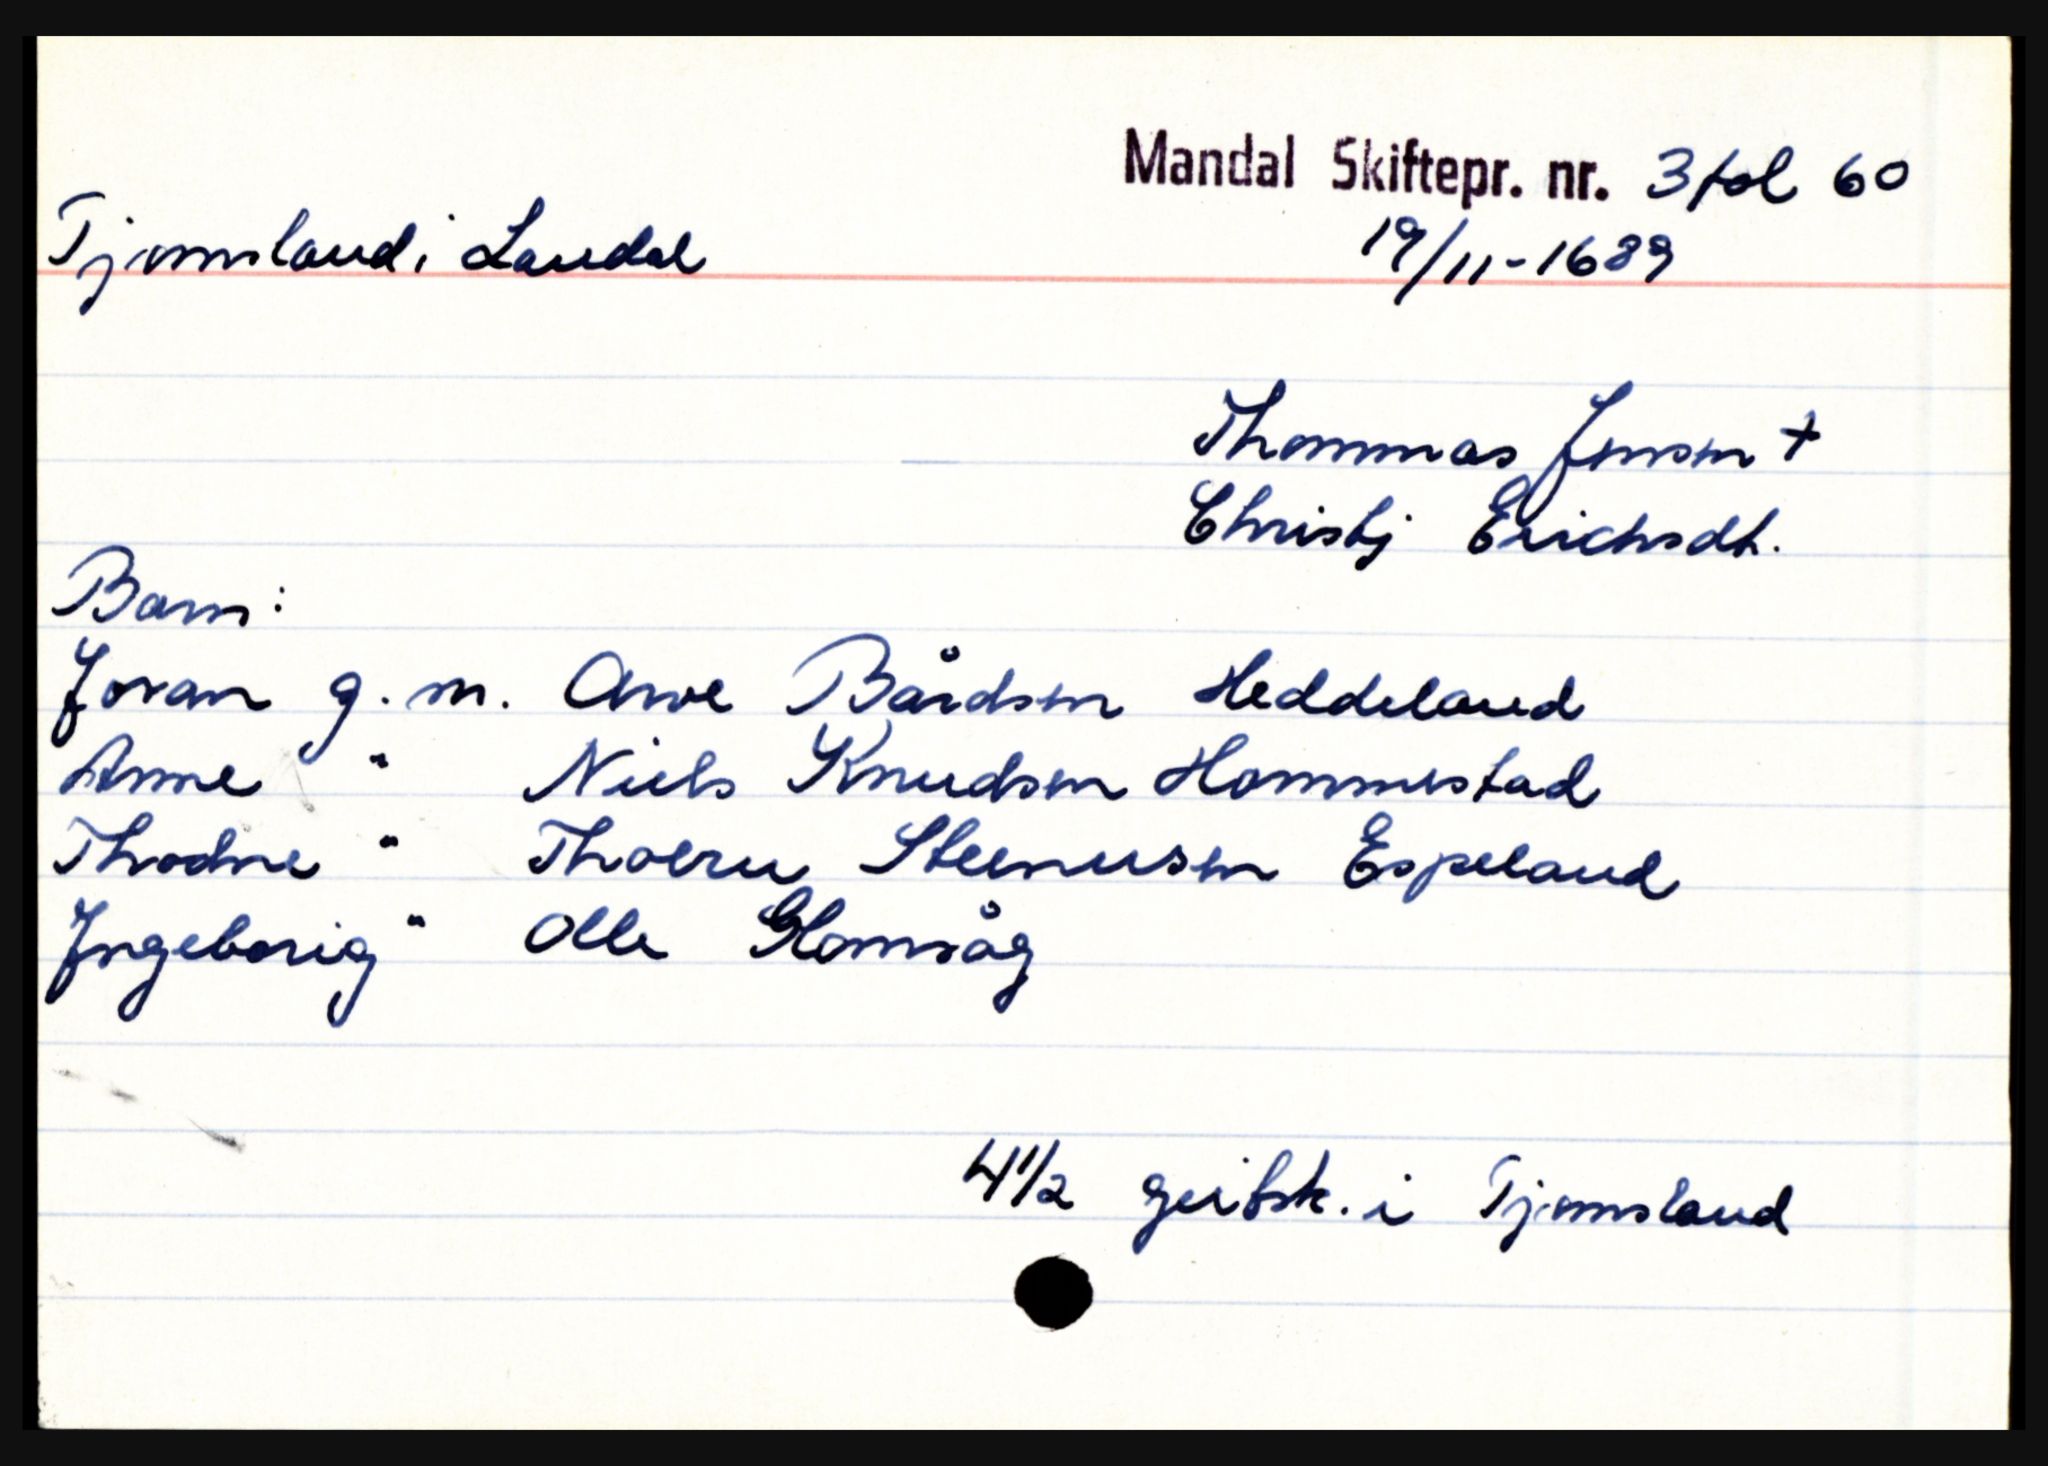 Mandal Skiftepr. nr. 3 fol 60
Tjomsland i Laudal
19/11-1689
Thommas Jensen +
Christj Erichsdt.
Barn:
Joran g. m. Awe Bårdsen Heddeland
Anne " Niels Knudsen Hommestad
Thodne " Thoeru Steenusen Espeland
Ingeborig " Olle Glomsåg
4 1/2 geitsk. i Tjomsland